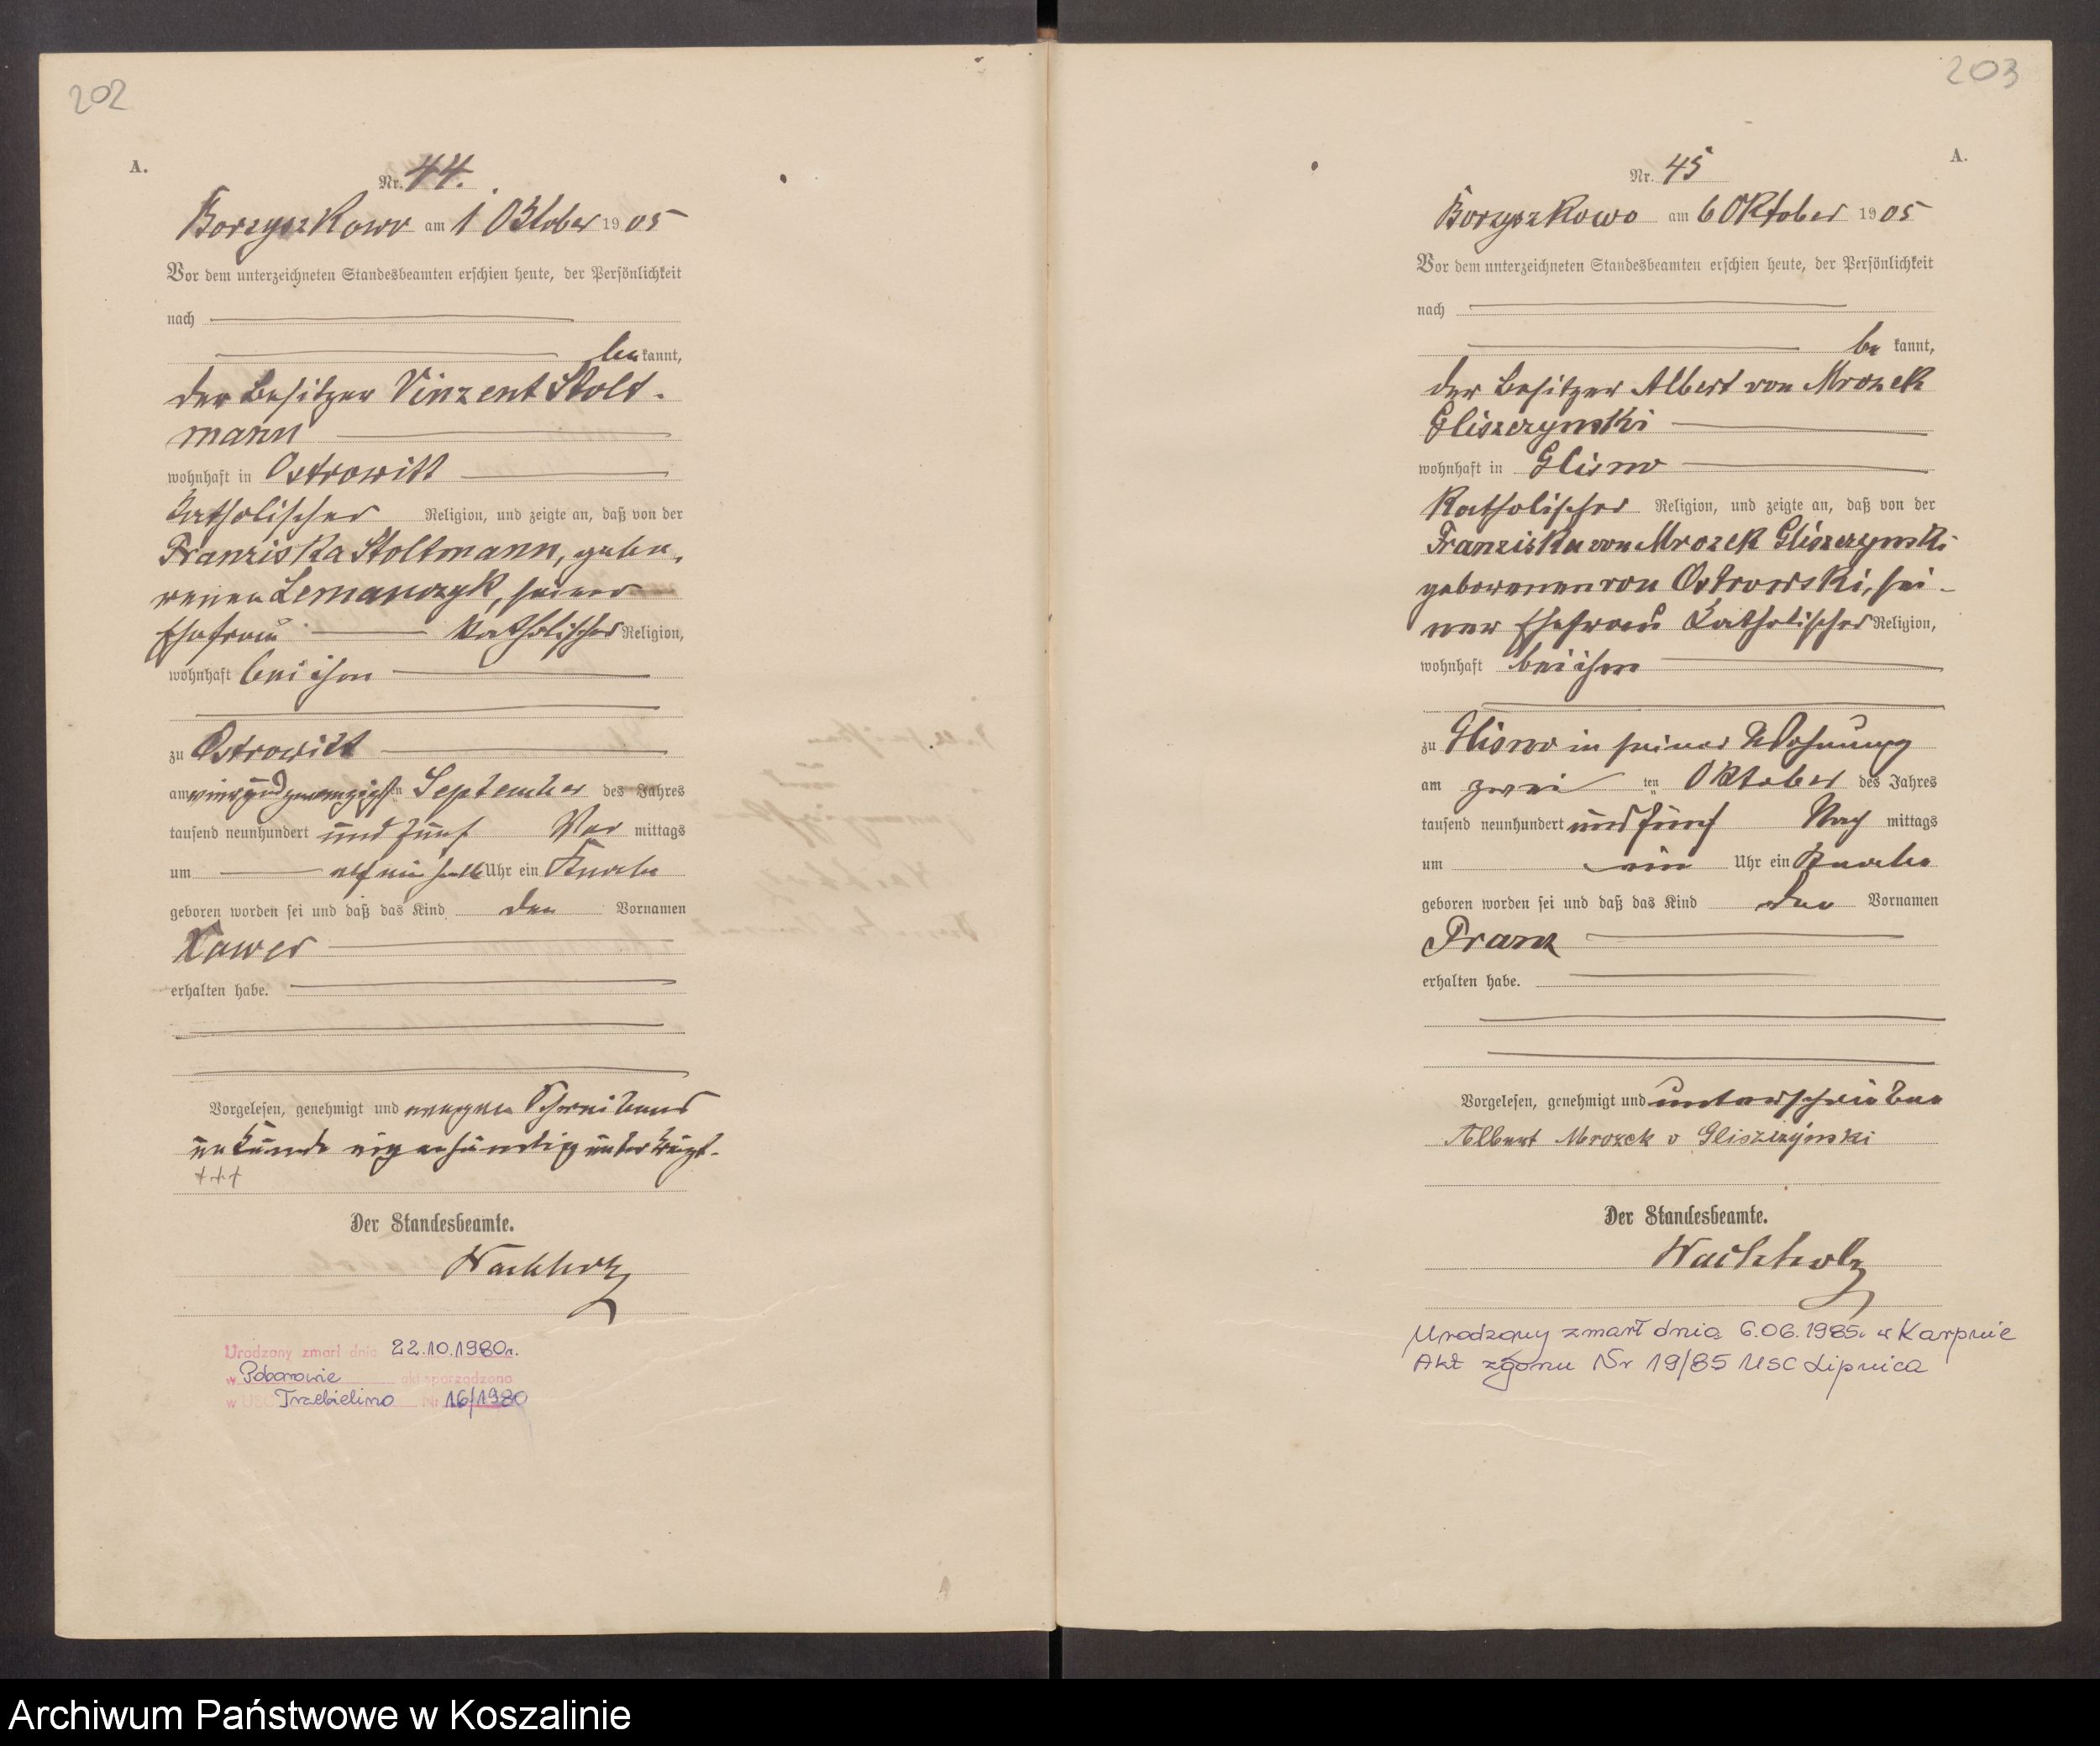 202
A.
Nr. 44.
Borzyszkowo am 1 Oktober 1905
Vor dem unterzeichneten Standesbeamten erschien heute, der Persönlichkeit
nach
be kannt,
der Besitzer Vinzent Stolt-
mann
wohnhaft in Ostrowitt
katholischer Religion, und zeigte an, daß von der
Franziska Stoltmann, gebo-
renen Lemanczyk, seiner
Ehefrau katholischer Religion,
wohnhaft bei ihm
zu Ostrowitt
am September des Jahres
tausend neunhundert und fünf Vor mittags
um elf ein halb Uhr ein Knabe
geboren worden sei und daß das Kind den Vornamen
Xawer
erhalten habe.
Vorgelesen, genehmigt und wegen Schreibens
unkunde eigenhändig unterkreuzt.
+++
Der Standesbeamte.
Wachholz
Urodzony zmarł dnia 22.10.1980r.
w Poborowie akt sporządzono
w USC Trzebielino Nr 16/1980
203
A.
Nr. 45
Borzyszkowo am 6 Oktober 1905
Vor dem unterzeichneten Standesbeamten erschien heute, der Persönlichkeit
nach
be kannt,
der Besitzer Albert von Mrozek
Gliszczynski
wohnhaft in Glisno
katholischer Religion, und zeigte an, daß von der
Franziska von Mrozek Gliszczynski
geborenen von Ostrowski, sei-
ner Ehefrau katholischer Religion,
wohnhaft bei ihm
zu Glisno in seiner Wohnung
am zwei ten Oktober des Jahres
tausend neunhundert und fünf Nach mittags
um ein Uhr ein Knabe
geboren worden sei und daß das Kind den Vornamen
Franz
erhalten habe.
Vorgelesen, genehmigt und unterschrieben
Albert Mrozek v Gliszczynski
Der Standesbeamte.
Wachholz
Urodzony zmarł dnia 6.06.1985r. w Karpnie
Akt zgonu Nr 19/85 USC Lipnica
Archiwum Państwowe w Koszalinie